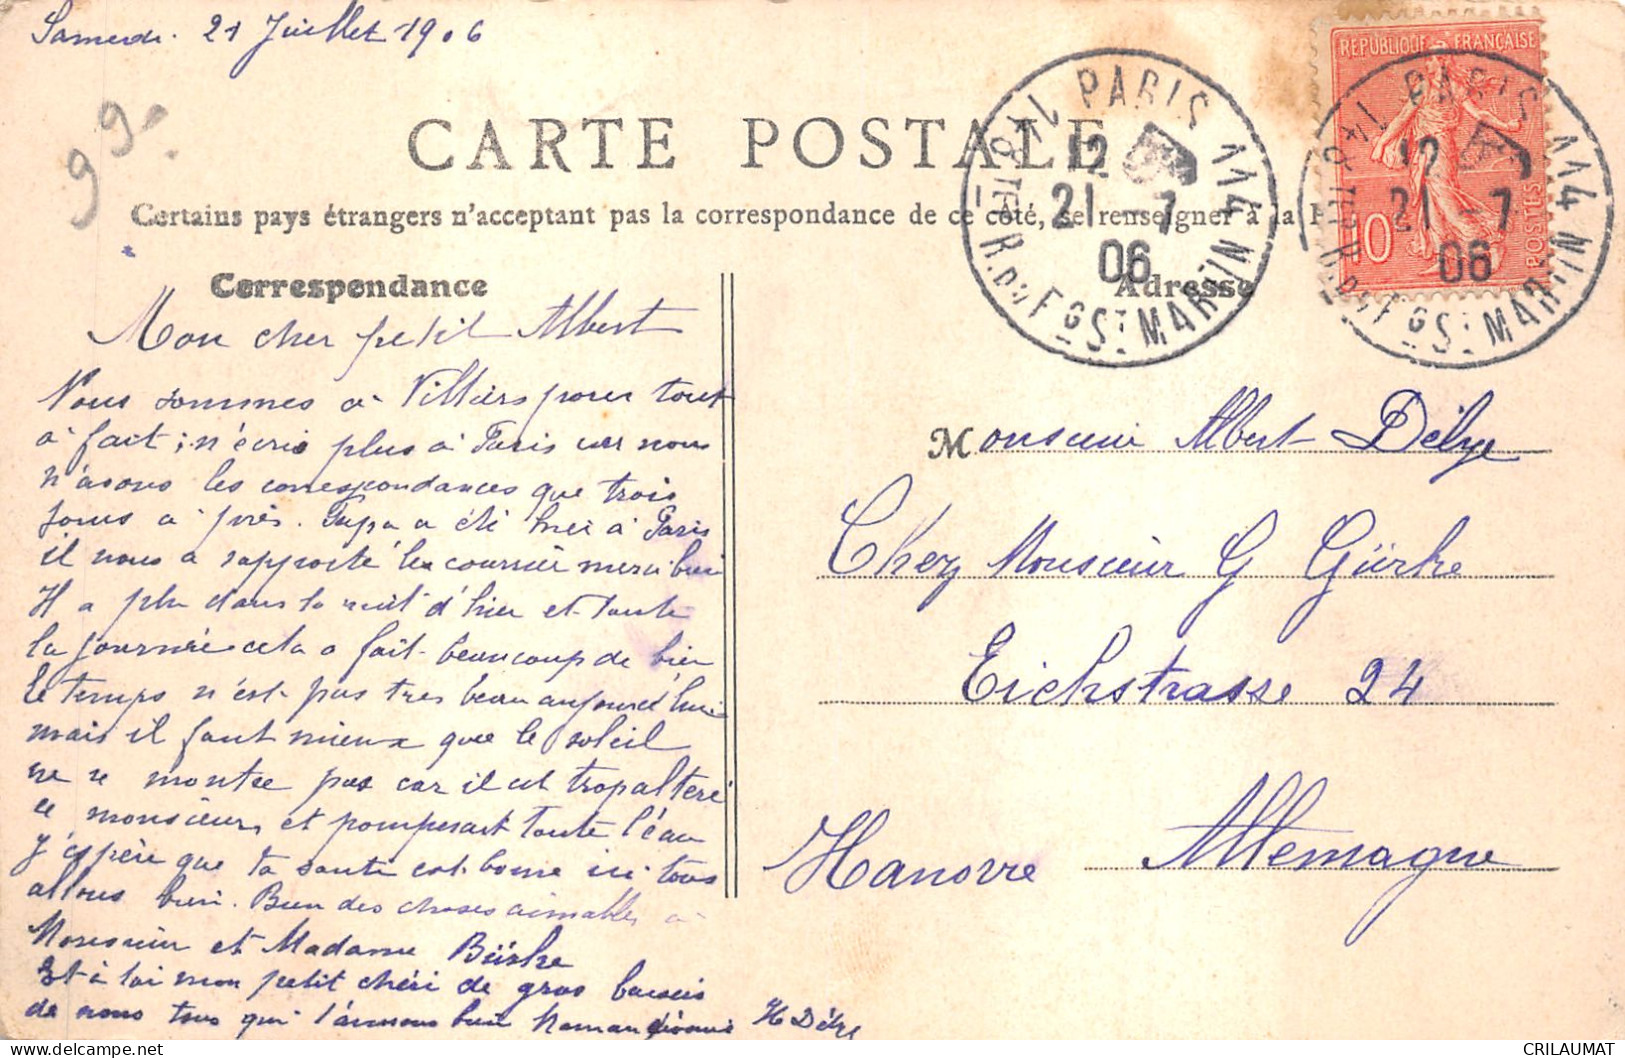 Samedi. 21 Juillet 1906
99
CARTE POSTALE
Certains pays étrangers n'acceptant pas la correspondance de ce côté, se renseigner à la
Correspondance
Adresse
REPUBLIQUE FRANÇAISE
10
POSTES
PARIS 114
12
21 - 7
06
R. DU FG ST MARTIN
PARIS 114
12
21 - 7
06
R. DU FG ST MARTIN
Mon cher petit Albert
Nous sommes à Villiers pour tout
à fait; n'écris plus à Paris car nous
n'avons les correspondances que trois
jours après. Papa a été hier à Paris
il nous a rapporté le courrier merci bien
Il a plu dans la nuit d'hier et toute
la journée cela a fait beaucoup de bien
Le temps n'est pas très beau aujourd'hui
mais il faut mieux que le soleil
ne se montre pas car il est trop altéré
ce monsieur, et pomperait toute l'eau
J'espère que ta santé est bonne ici tous
allons bien. Bien des choses aimables à
Monsieur et Madame Gürke
Et à toi mon petit chéri de gros baisers
de nous tous qui t'aimons bien
H Délye
Monsieur Albert Délye
Chez Monsieur G Gürke
Eichstrasse 24
Hanovre Allemagne
CRILAUMAT